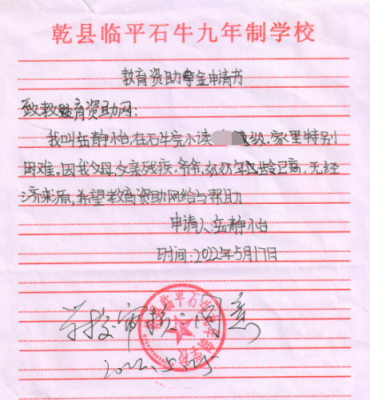 乾县临平石牛九年制学校
教育资助学金申请书
致教育资助网:
我叫岳静怡,在石牛完小读 级,家里特别
困难,因我父母,父亲残疾,爷爷,奶奶年龄已高,无经
济来源,希望教育资助网给与帮助
申请人岳静怡
时间:2022年5月17日
学校审核:同意
2022.5.
县临平石牛九年制学校